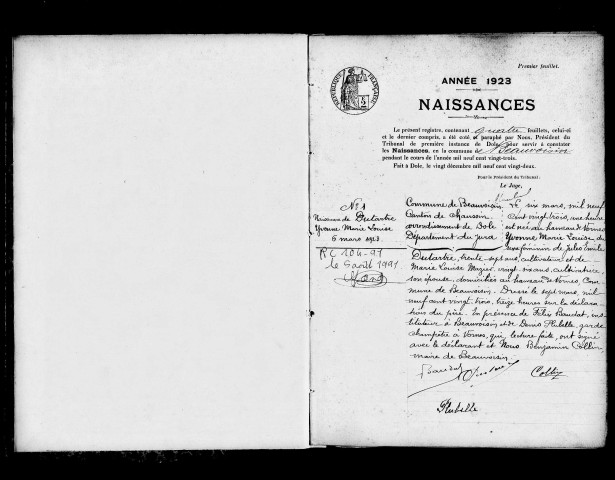 Premier feuillet.
ANNÉE 1923
NAISSANCES
RÉPUBLIQUE FRANÇAISE
Le présent registre, contenant quatre feuillets, celui-ci
et le dernier compris, a été coté et paraphé par Nous, Président du
Tribunal de première instance de Dole, pour servir à constater
les Naissances, en la commune de Beauvoisin
pendant le cours de l'année mil neuf cent vingt-trois.
Fait à Dole, le vingt décembre mil neuf cent vingt-deux.
Pour le Président du Tribunal:
Le Juge,
No 1
Naissance de Dutartre
Yvonne Marie Louise
6 mars 1923
RC 104-91
le 5 août 1991
Commune de Beauvoisin
Canton de Chaussin
arrondissement de Dole
Département du Jura
Le six mars, mil neuf
cent vingt trois, une heure
est née au hameau de Vornes
Yvonne Marie Louise, du
sexe féminin de Jules Emile
Dutartre, trente sept ans, cultivateur et de
Marie Louise ans, cultivatrice
son épouse, domiciliés au hameau de Vornes, Com
mune de Beauvoisin. Dressé le sept mars, mil
neuf cent vingt trois, treize heures sur la déclara
tion du père. En présence de Félix Baudat, ins
tituteur à Beauvoisin et de Denis Plubelle, garde
champêtre à Vornes, qui, lecture faite, ont signé
avec le déclarant et Nous Benjamin Collin
maire de Beauvoisin.
Baudat Dutartre Collin
Plubelle